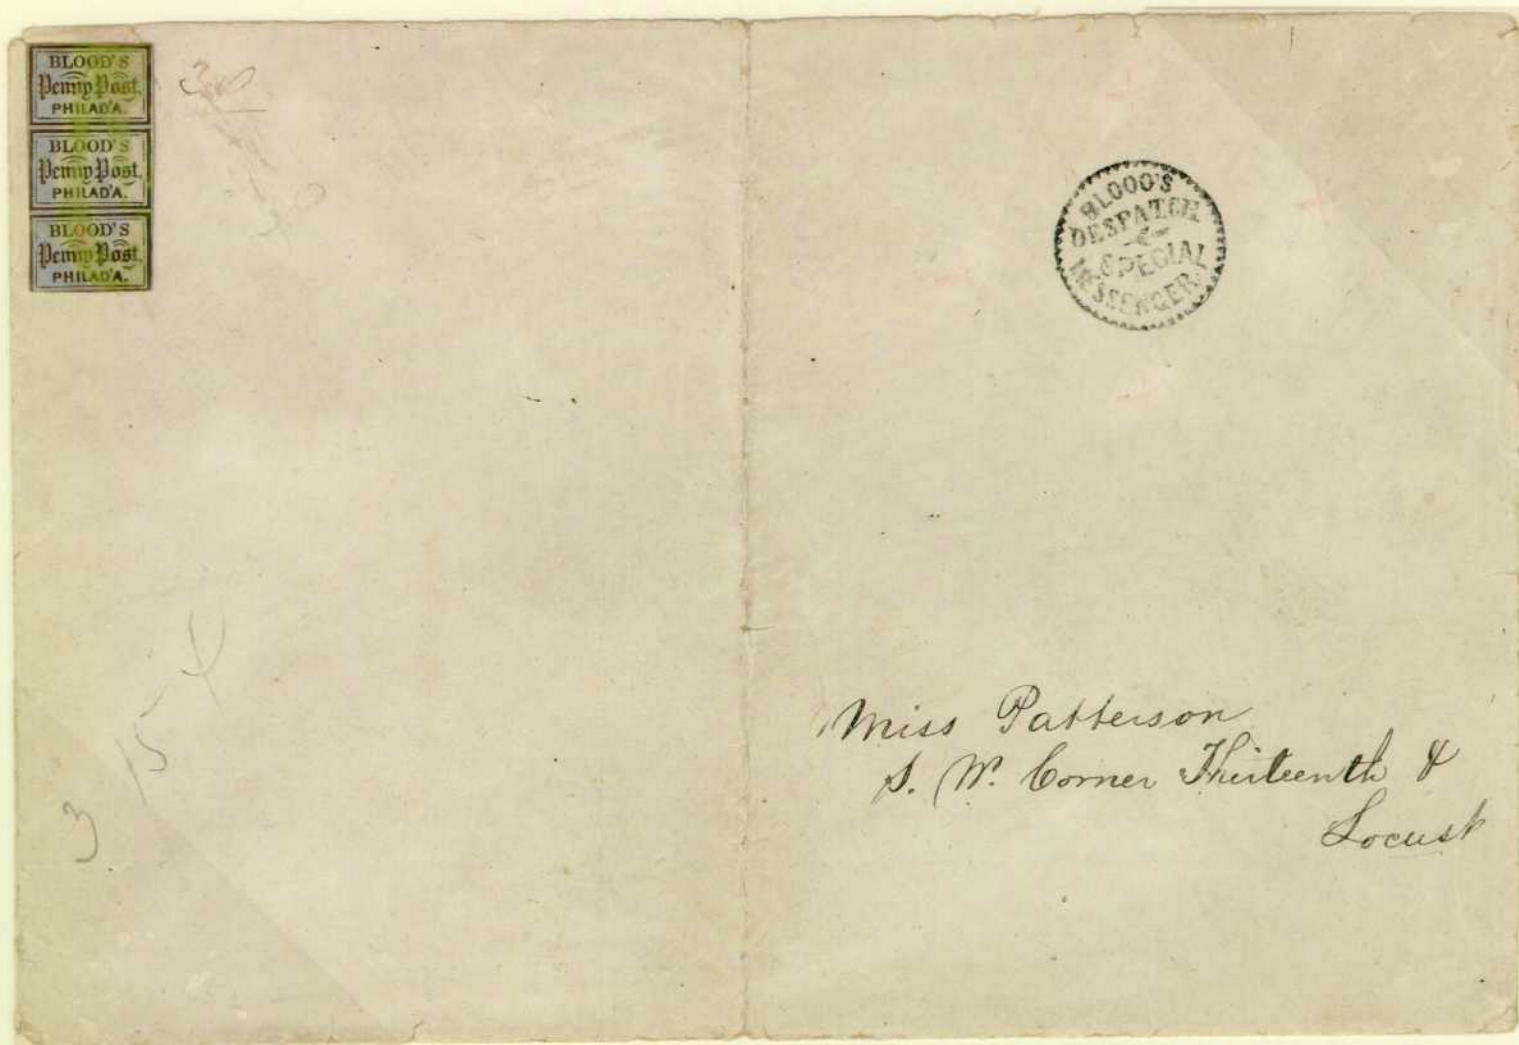 BLOOD'S
Penny Post.
PHILAD'A.
BLOOD'S
Penny Post.
PHILAD'A.
BLOOD'S
Penny Post.
PHILAD'A.
BLOOD'S
DESPATCH
SPECIAL
MESSENGER
Miss Patterson
S. W. Corner Thirteenth &
Locust
3
15